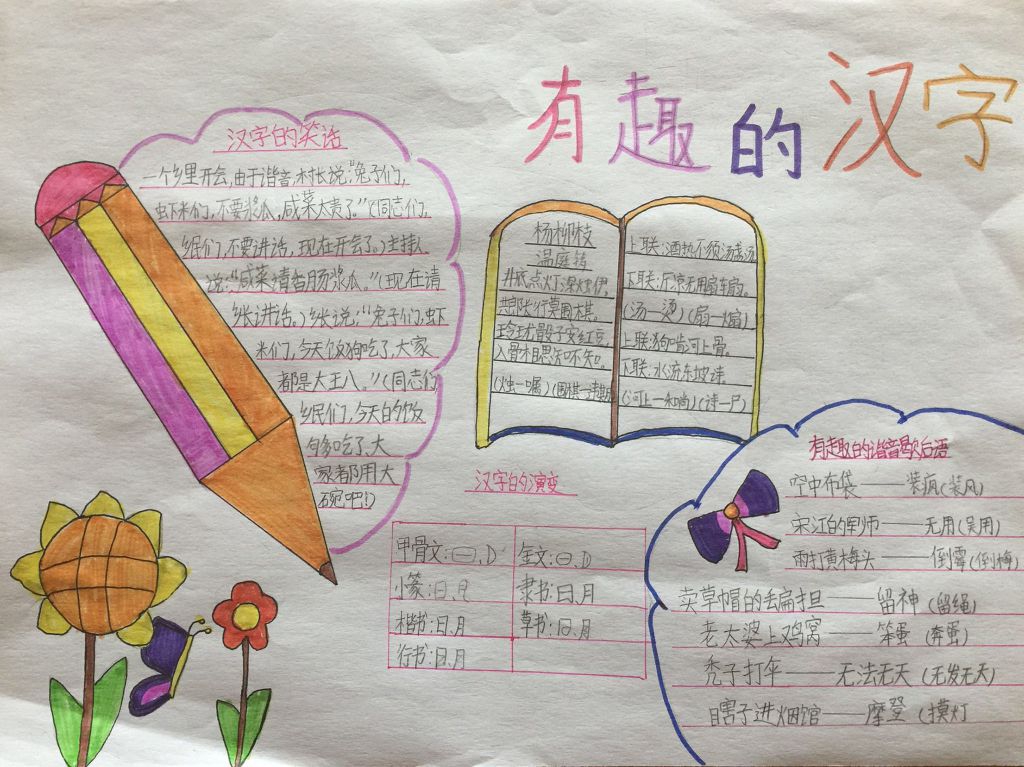 有趣的汉字
汉字的笑话
一个乡里开会,由于谐音,村长说:“兔子们,
虾米们,不要浆瓜,咸菜太贵了。”(同志们,
乡民们,不要讲话,现在开会了。)主持人
说:“咸菜请香肠浆瓜。”(现在请
乡长讲话。)乡长说:“兔子们,虾
米们,今天饭狗吃了,大家
都是大王八。”(同志们,
乡民们,今天的饭
够吃了,大
家都用大
碗吧!)
杨柳枝
温庭筠
井底点灯深烛伊,
共郎长行莫围棋。
玲珑骰子安红豆,
入骨相思知不知。
(烛—嘱)(围棋—违期)
上联:酒热不须汤盏汤
下联:厅凉无用扇车扇。
(汤—烫)(扇—煽)
上联:狗啃河上骨。
下联:水流东坡诗
(河上—和尚)(诗—尸)
汉字的演变
甲骨文: 金文:
小篆:日、月 隶书:日、月
楷书:日、月 草书:日、月
行书:日、月
有趣的谐音歇后语
空中布袋——装疯(装风)
宋江的军师——无用(吴用)
雨打黄梅头——倒霉(倒梅)
卖草帽的丢扁担——留神(留绳)
老太婆上鸡窝——笨蛋(奔蛋)
秃子打伞——无法无天(无发无天)
瞎子进烟馆——摩登(摸灯